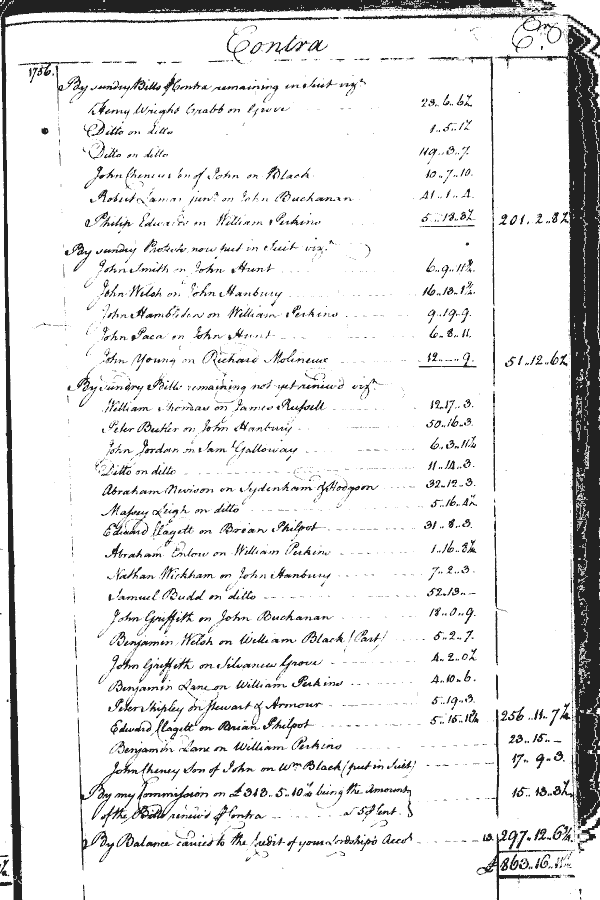 Contra
Cr.
1756. By sundry Bills ⅌ Contra remaining in Suit vizt
Henry Wright Crabb on Grove 23..6..6½
Ditto on ditto 1..5..1½
Ditto on ditto 119..3..7.
John Cheney Son of John on Black 10..7..10.
Robert Lamar junr. on John Buchanan 41..1..4.
Philip Edwards on William Perkins 5..13..3½ 201..2..8½
By sundry Protests now put in Suit vizt
John Smith on John Hunt 6..9..11½
John Welsh on John Hanbury 16..13..1½
John Hambleden on William Perkins 9..19..9.
John Paca on John Hunt 6..8..11.
John Young on Richard Molineux 12..—..9. 51..12..6½
By sundry Bills remaining not yet renew'd vizt
William Thomas on James Russell 12..17..3.
Peter Butler on John Hanbury 50..16..3.
John Jordan on Saml. Galloway 6..3..11½
Ditto on ditto 11..14..3.
Abraham Nevison on Sydenham & Hodgson 32..12..3.
Massey Leigh on ditto 5..16..4½
Edward Clagett on Brian Philpot 31..8..3.
Abraham Enlow on William Perkins 1..16..3¾
Nathan Wickham on John Hanbury 7..2..3.
Samuel Budd on ditto 52..13..—
John Griffith on John Buchanan 18..0..9.
Benjamin Welsh on William Black (Part) 5..2..7.
John Griffith on Silvanus Grove 4..2..0½
Benjamin Lane on William Perkins 4..10..6.
Peter Shipley on Stewart & Armour 5..19..3.
Edward Clagett on Brian Philpot 5..15..11¾ 256..11..7¼
Benjamin Lane on William Perkins 23..15..—
John Cheney Son of John on Wm. Black (put in Suit) 17..9..3.
By my Commission on £313..5..10½ being the Amount 15..13..3½
of the Bills renew'd ⅌ Contra a 5 ⅌ Cent
By Balance carried to the Credit of your Lordship's Accot. 13. 297..12..6¾
£863..16..11½